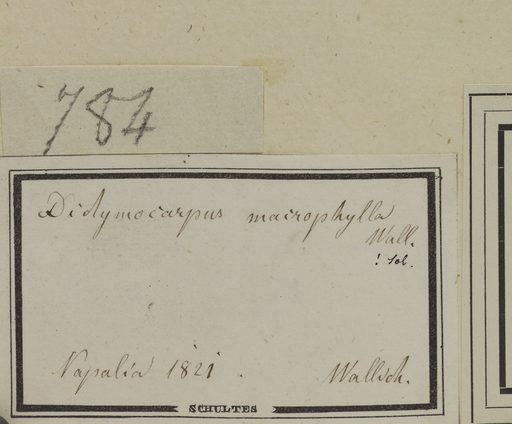 784
Didymocarpus macrophylla
Wall.
! Sol.
Napalia 1821
Wallich.
SCHULTES